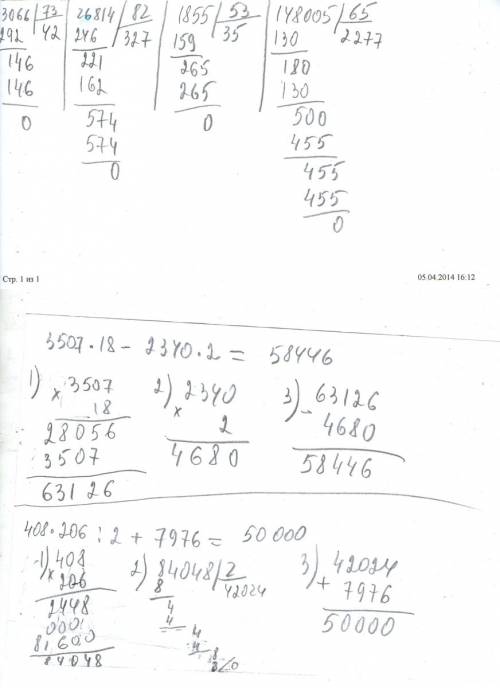 3066 73 26814 82 1855 53 148005 65
292 42 246 327 159 35 130 2277
146 221 265 180
146 162 265 130
0 574 0 500
574 455
0 455
455
0
Стр. 1 из 1 05.04.2014 16:12
3507·18 - 2340·2 = 58446
1) × 3507 2) × 2340 3) - 63126
18 2 4680
28056 4680 58446
3507
63126
408·206 : 2 + 7976 = 50 000
1) × 408 2) 84048 2 3) + 42024
206 8 42024 7976
2448 4 50000
000 4
81600 4
84048 4
8
8
0